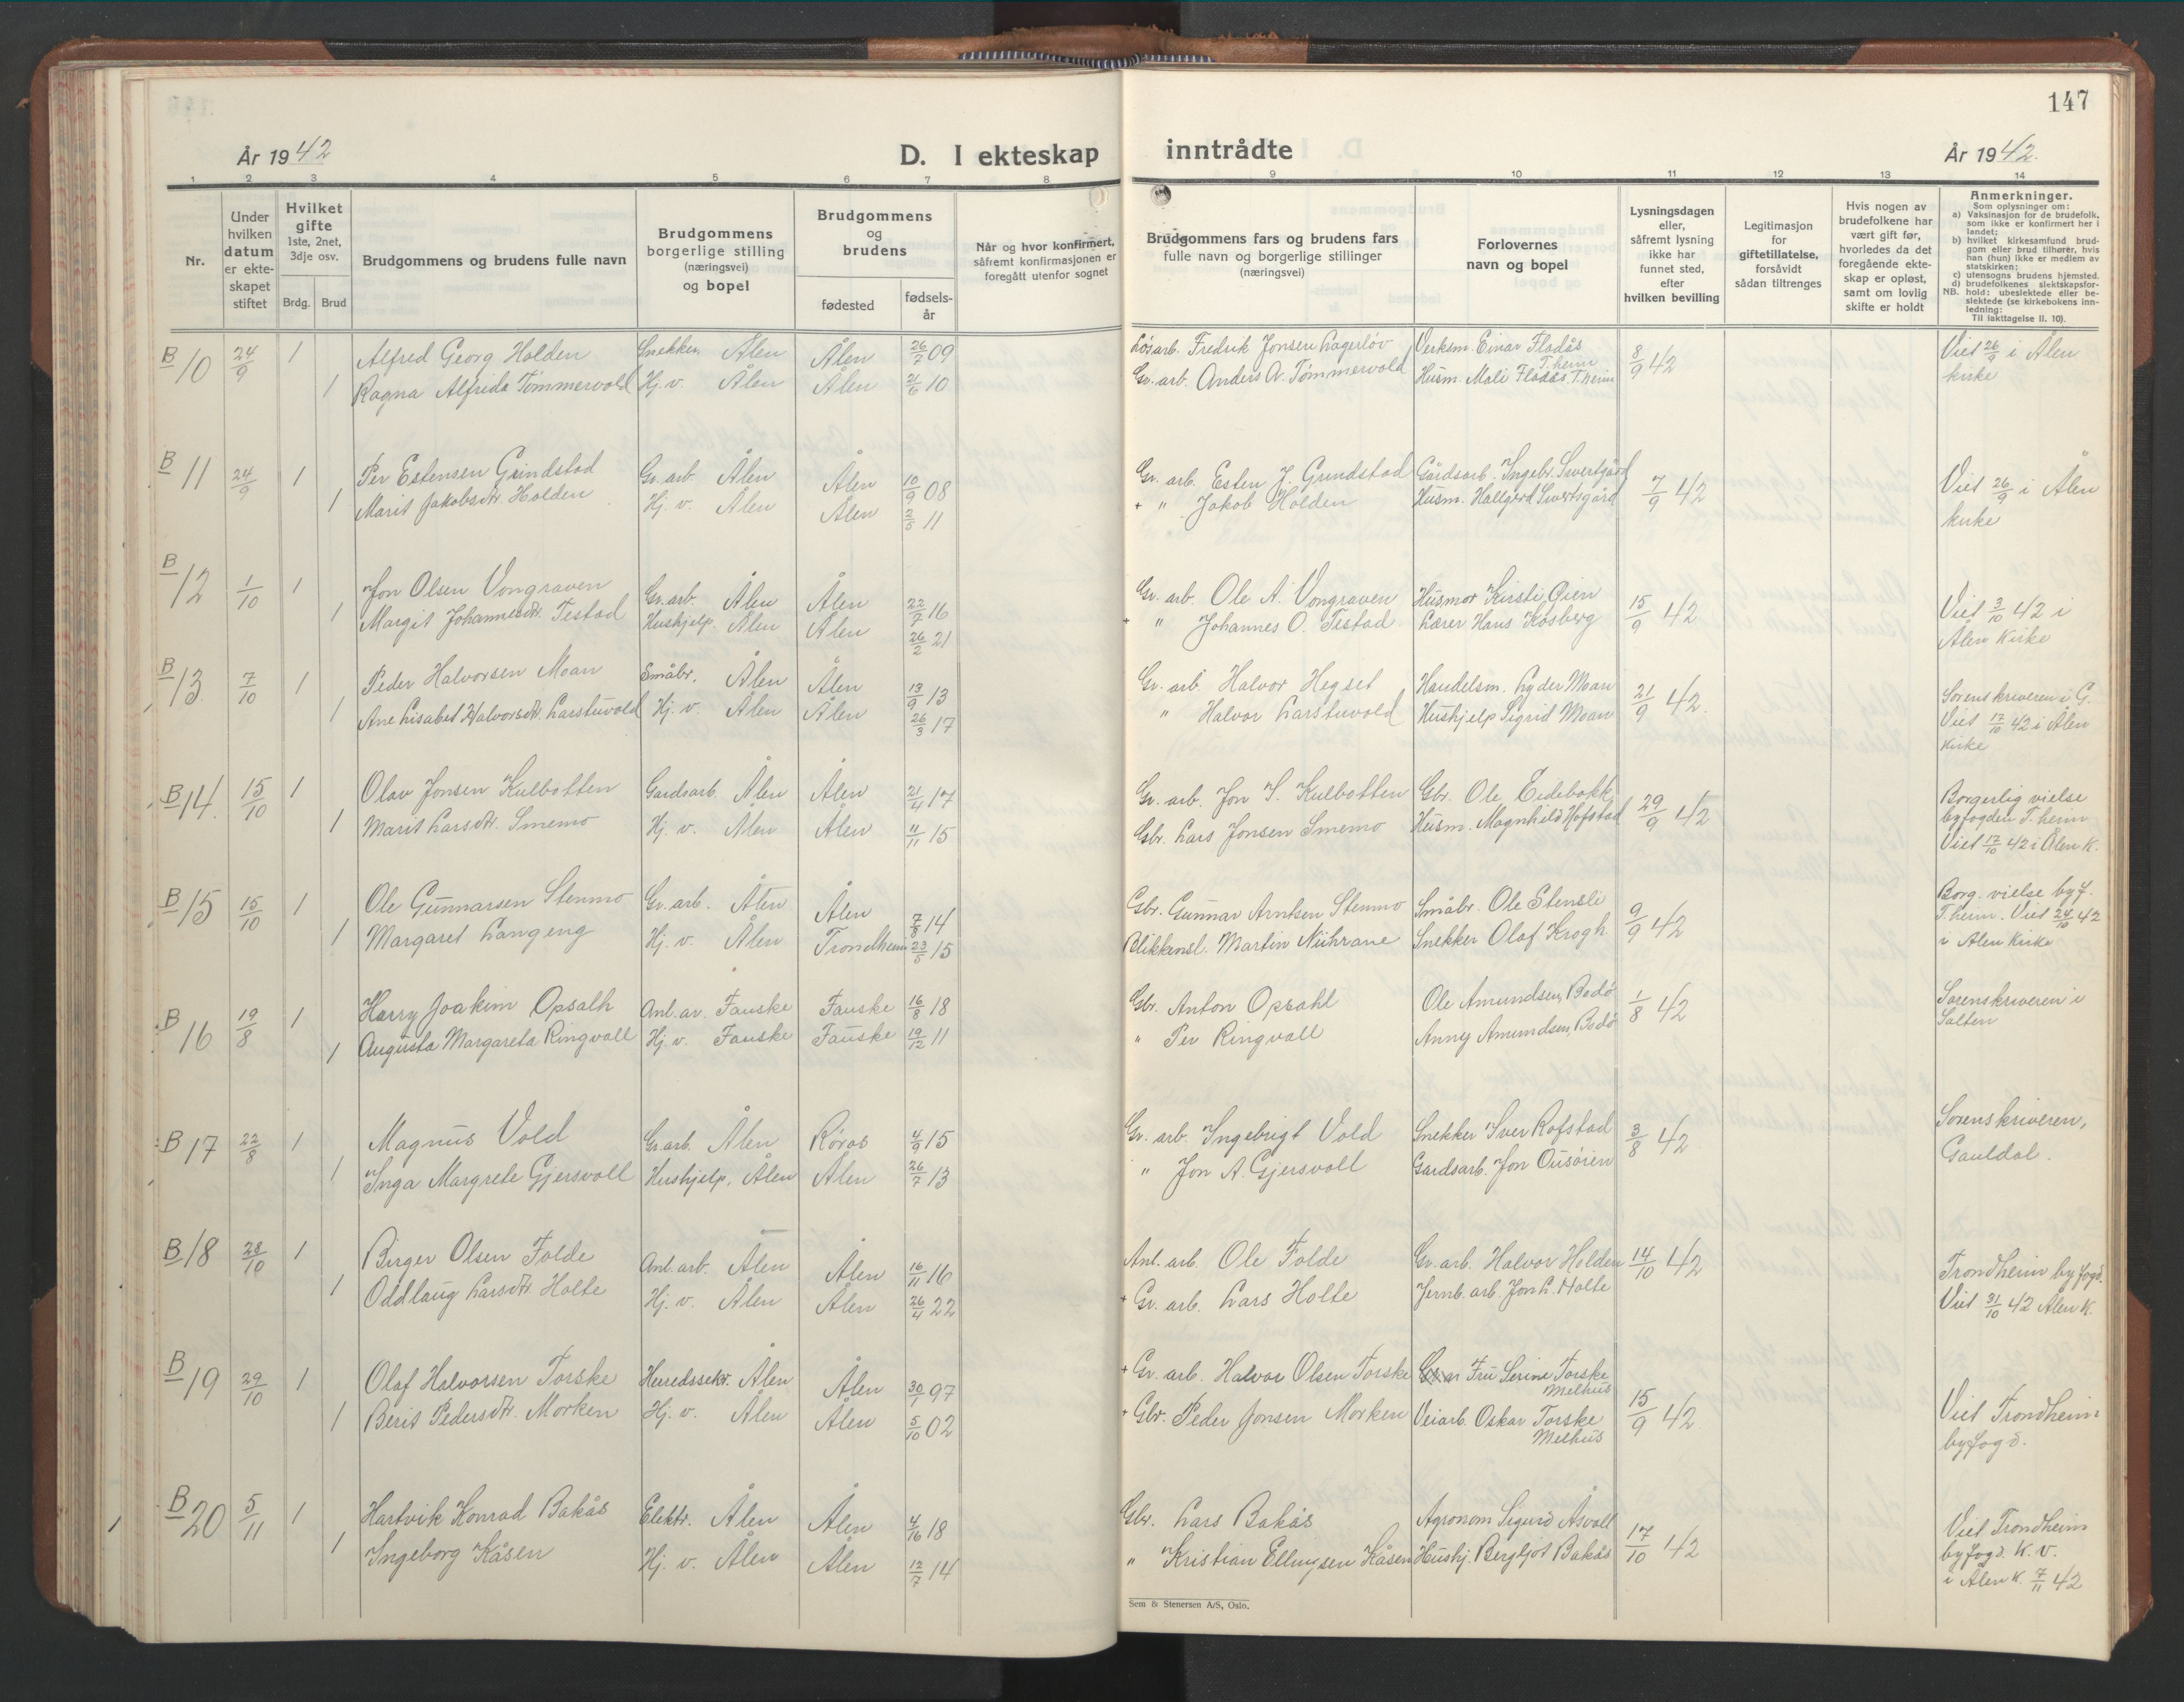 147
År 1942
D. I ekteskap
inntrådte
År 1942.
1 2 3 4 5 6 7 8 9 10 11 12 13 14
Nr.
Under
hvilken
datum
er ekte-
skapet
stiftet
Hvilket
gifte
1ste, 2net,
3dje osv.
Brdg. Brud
Brudgommens og brudens fulle navn
Brudgommens
borgerlige stilling
(næringsvei)
og bopel
Brudgommens
og
brudens
fødested
fødsels-
år
Når og hvor konfirmert,
såfremt konfirmasjonen er
foregått utenfor sognet
Brudgommens fars og brudens fars
fulle navn og borgerlige stillinger
(næringsvei)
Forlovernes
navn og bopel
Lysningsdagen
eller,
såfremt lysning
ikke har
funnet sted,
efter
hvilken bevilling
Legitimasjon
for
giftetillatelse,
forsåvidt
sådan tiltrenges
Hvis nogen av
brudefolkene har
vært gift før,
hvorledes da det
foregående ekte-
skap er opløst,
samt om lovlig
skifte er holdt
Anmerkninger.
Som oplysninger om:
a) Vaksinasjon for de brudefolk,
som ikke er konfirmert her i
landet;
b) hvilket kirkesamfund brud-
gom eller brud tilhører, hvis
han (hun) ikke er medlem av
statskirken;
c) utensogns brudens hjemsted.
d) brudefolkenes slektskapsfor-
NB. hold: ubeslektede eller be-
slektede (se kirkebokens inn-
ledning:
Til iakttagelse II. 10).
B 10 24/9 1 Alfred Georg Holden Snekker. Ålen Ålen 26/7 09 Løsarb. Fredrik Jonsen Lagerløv Verksm. Einar Fladås T.heim 8/9 42 Viet 26/9 i Ålen
1 Ragna Alfrida Tømmervold Hj. v. Ålen Ålen 21/6 10 Gr. arb. Anders A. Tømmervold Husm. Mali Fladås, T.heim kirke
B 11 24/9 1 Per Estensen Grindstad Gr. arb. Ålen Ålen 10/9 08 Gr. arb. Esten J. Grundstad Gårdsarb. Ingebr. Sivertgård 7/9 42 Viet 26/9 i Ålen
1 Marit Jakobsdtr. Holden Hj. v. Ålen Ålen 2/5 11 + " Jakob Holden Husm. Hallgerd Sivertsgård kirke
B 12 1/10 1 Jon Olsen Vongraven Gr. arb. Ålen Ålen 22/7 16 Gr. arb. Ole A. Vongraven Husmor Kirsti Øien 15/9 42 Viet 3/10 42 i
1 Margit Johannesdtr. Testad Hushjelp. Ålen Ålen 26/2 21 + " Johannes O. Testad Lærer Hans Kosberg Ålen Kirke
B 13. 7/10 1 Peder Halvorsen Moan Småbr. Ålen Ålen 13/9 13 Gr. arb. Halvor Hegset Handelsm. Lyder Moan 21/9 42. Sorenskriveren i G.
1 Ane Lisabet Halvorsdtr. Larstuvold Hj. v. Ålen Ålen 26/3 17 " Halvor Larstuvold Hushjelp Sigrid Moan Viet 17/10 42 i Ålen
Kirke
B 14. 15/10 1 Olav Jonsen Kulbotten Gardsarb. Ålen Ålen 21/4 17 Gr. arb. Jon S. Kulbotten Gbr. Ole Eidebakk 29/9 42 Borgerlig vielse
1 Marit Larsdtr. Smemo Hj. v. Ålen Ålen 11/11 15 Gbr. Lars Jonsen Smemo Husm. Magnhild Hofstad byfogden T.heim
Viet 17/10 42 i Ålen K.
B 15 15/10 1 Ole Gunnarsen Stenmo Gr. arb. Ålen Ålen 7/8 14 Gbr. Gunnar Arntsen Stenmo Småbr. Ole Stensli 9/9 42 Borg. vielse byf.
1 Margaret Langeng Hj. v. Ålen Trondheim 23/5 15 Blikkensl. Martin Snekker Olaf Krogh T.heim. Viet 24/10 42
i Ålen Kirke
B 16 19/8 1 Harry Joakim Opsalh Anl. ar. Fauske Fauske 16/8 18 Gbr. Anton Opsahl Ole Amundsen, Bodø 1/8 42 Sorenskriveren i
1 Augusta Margareta Ringvall Hj. v. Fauske Fauske 19/12 11 " Per Ringvall Anny Amundsen, Bodø Salten
B 17 22/8 1 Magnus Vold Gr. arb. Ålen Røros 4/9 15 Gr. arb. Ingebrigt Vold Snekker Iver Rofstad 3/8 42 Sorenskriveren,
1 Inga Margrete Gjersvoll Hushjelp, Ålen Ålen 26/7 13 " Jon A. Gjersvoll Gardsarb. Jon Ousøren Gauldal.
B 18 28/10 1 Birger Olsen Folde Anl. arb. Ålen Ålen 16/11 16 Anl. arb. Ole Folde Gr. arb. Halvor Holden 14/10 42 Trondheim byfogd.
1 Oddlaug Larsdtr. Holte Hj. v. Ålen Ålen 26/4 22 + Gr. arb. Lars Holte Jernb. arb. Jon L. Holte Viet 31/10 42 Ålen K.
B 19 29/10 1 Olaf Halvorsen Torske Herredssekr. Ålen Ålen 30/1 97 + Gr. arb. Halvor Olsen Torske Fru Serine Torske Melhus 15/9 42 Viet Trondheim
1 Berit Pedersdtr. Morken Hj. v. Ålen Ålen 5/10 02 + Gbr. Peder Jonsen Morken Veiarb. Oskar Torske Melhus byfogd.
B 20 5/11 1 Hartvik Konrad Bakås Elektr. Ålen Ålen 4/16 18 Gbr. Lars Bakås Agronom Sigurd Åsvoll 17/10 42 Viet Trondheim
1 Ingeborg Kåsen Hj. v. Ålen Ålen 12/7 14 " Kristian Ellingsen Kåsen Hushj. Bergljot Bakås byfogd. K. v.
i Ålen K. 7/11 42
Sem & Stenersen A/S, Oslo.